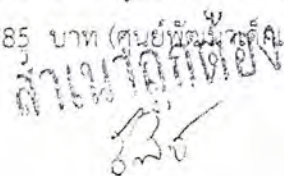 85 บาท (ศูนย์พัฒนาเด็ก
สำเนาถูกต้อง